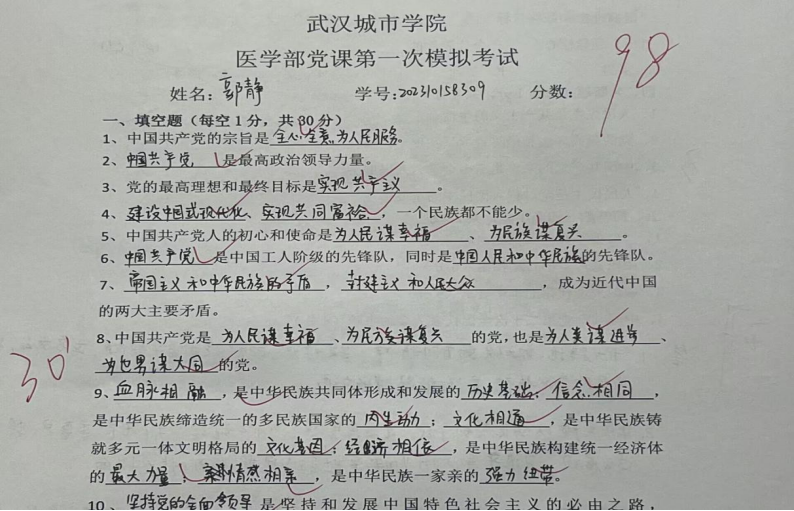 武汉城市学院
医学部党课第一次模拟考试
98
姓名：郭静 学号：202310158309 分数：
一、填空题（每空1分，共30分）
1、中国共产党的宗旨是全心全意为人民服务。
2、中国共产党 是最高政治领导力量。
3、党的最高理想和最终目标是实现共产主义。
4、建设中国式现代化、实现共同富裕，一个民族都不能少。
5、中国共产党人的初心和使命是为人民谋幸福、为民族谋复兴。
6、中国共产党是中国工人阶级的先锋队，同时是中国人民和中华民族的先锋队。
7、帝国主义和中华民族的矛盾，封建主义和人民大众，成为近代中国
的两大主要矛盾。
8、中国共产党是为人民谋幸福、为民族谋复兴的党，也是为人类谋进步、
30'
为世界谋大同的党。
9、血脉相融，是中华民族共同体形成和发展的历史基础；信念相同，
是中华民族缔造统一的多民族国家的内生动力；文化相通，是中华民族铸
就多元一体文明格局的文化基因；经济相依，是中华民族构建统一经济体
的最大力量；情感相亲，是中华民族一家亲的强力纽带。
10、坚持党的全面领导是坚持和发展中国特色社会主义的必由之路，